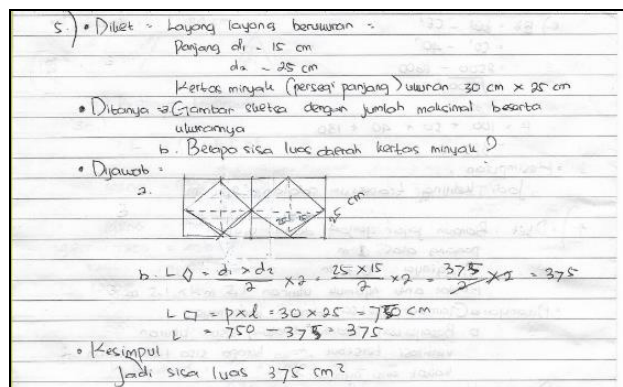 5.) • Diket = Layang layang berukuran =
Panjang d1 = 15 cm
d2 = 25 cm
Kertas minyak (persegi panjang) ukuran 30 cm x 25 cm
• Ditanya = a Gambar sketsa dengan jumlah maksimal beserta
ukurannya
b. Berapa sisa luas daerah kertas minyak ?
• Dijawab =
a.
25 cm
b. L ◊ = d1 x d2 / 2 x 2 = 25 x 15 / 2 x 2 = 375 / 2 x 2 = 375
L □ = p x l = 30 x 25 = 750 cm
L = 750 - 375 = 375
• Kesimpul
Jadi sisa luas 375 cm²